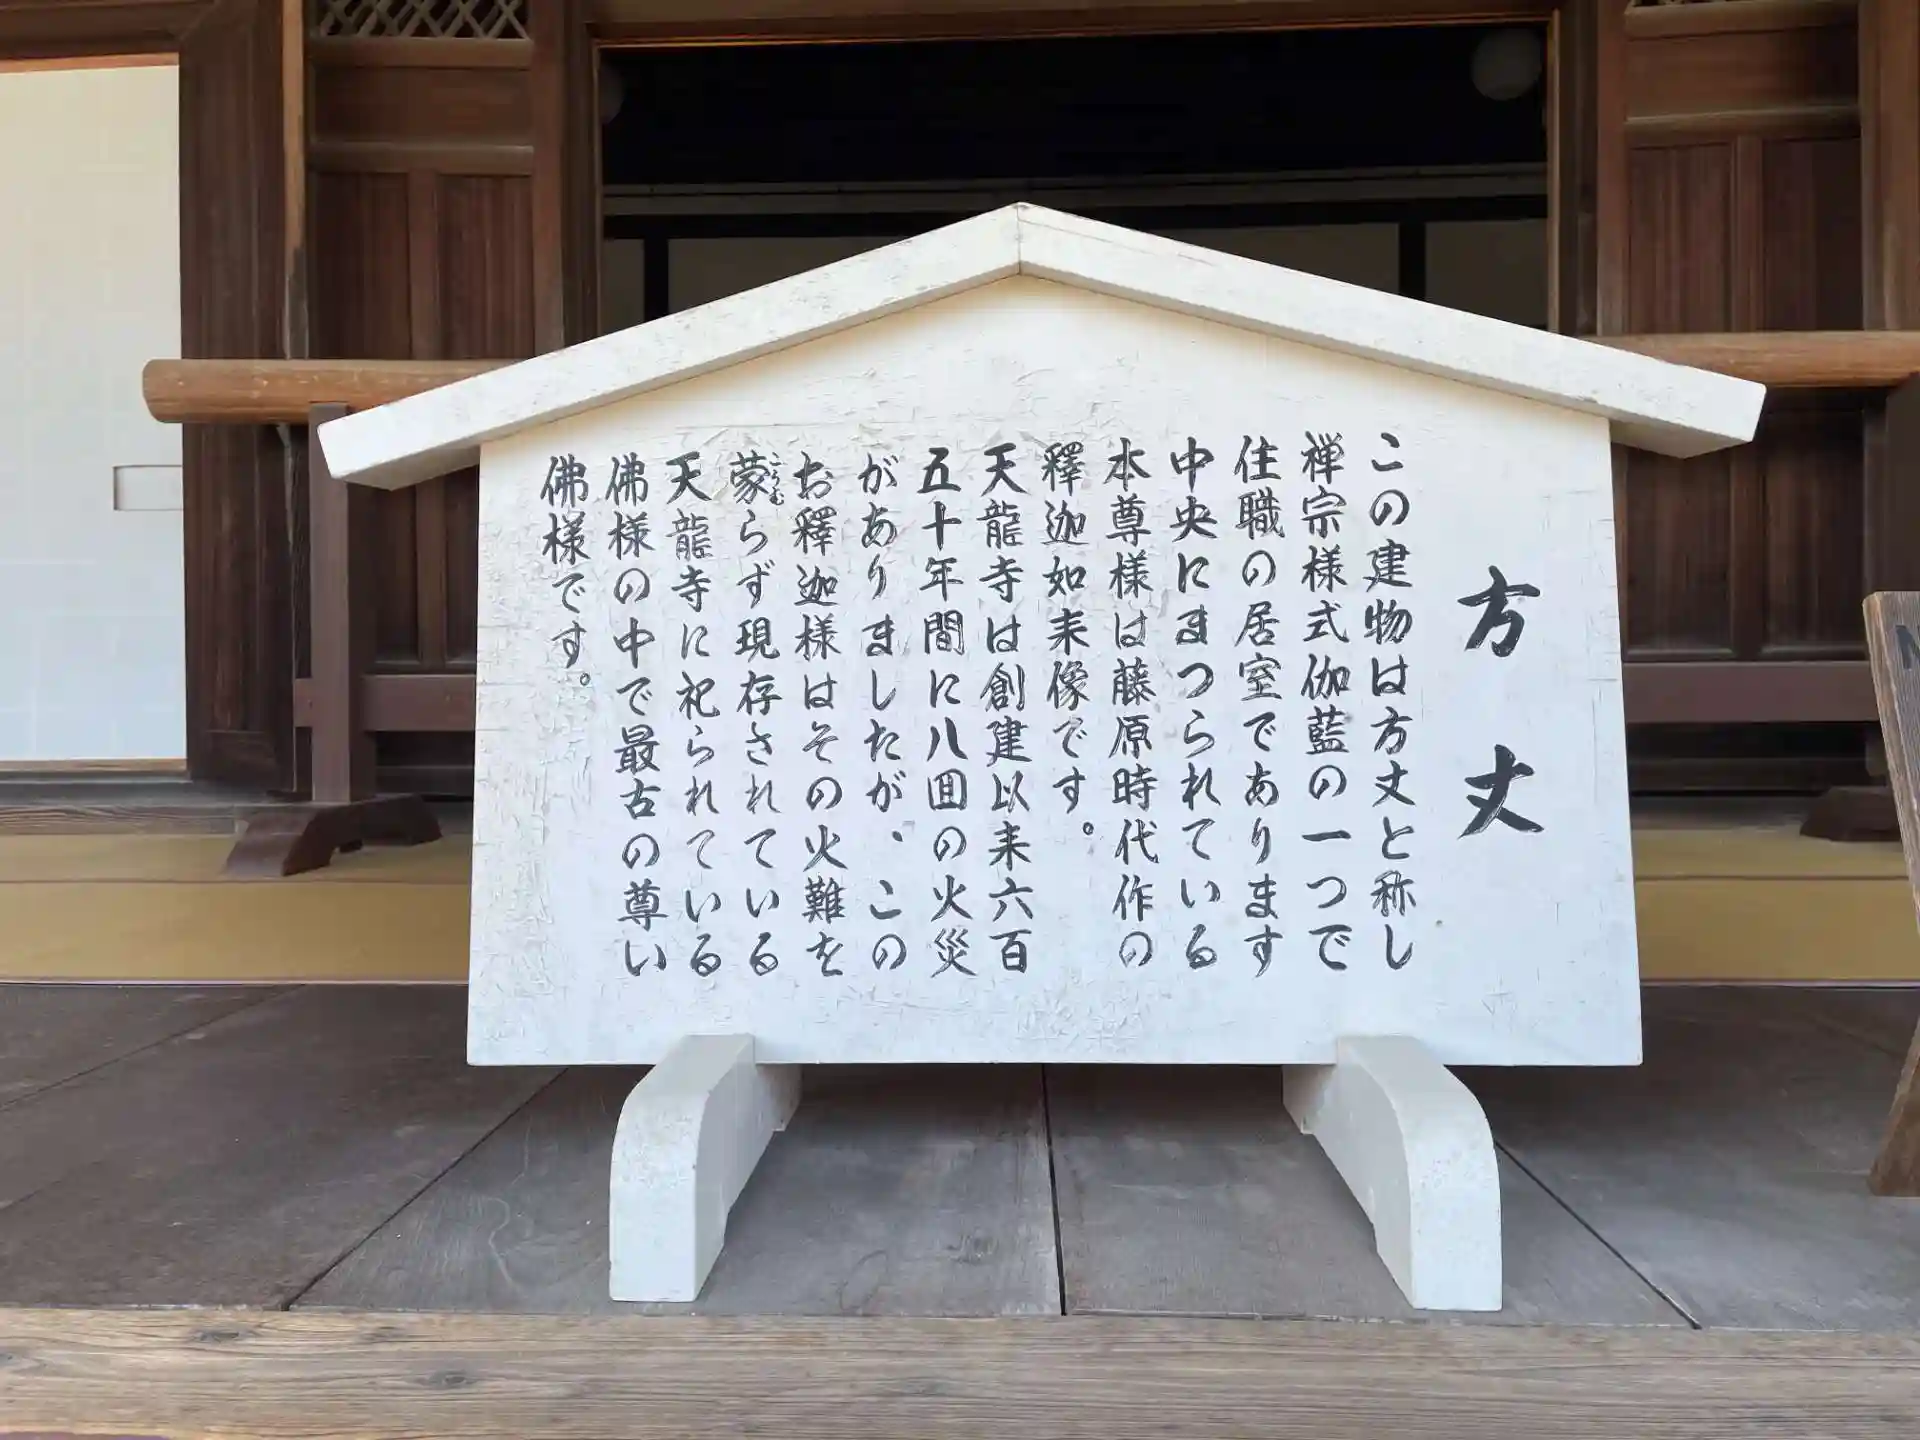 方丈
この建物は方丈と称し
禅宗様式伽藍の一つで
住職の居室であります
中央にまつられている
本尊様は藤原時代作の
釋迦如来像です。
天龍寺は創建以来六百
五十年間に八回の火災
がありましたが、この
お釋迦様はその火難を
蒙らず現存されている
こうむ
天龍寺に祀られている
佛様の中で最古の尊い
佛様です。